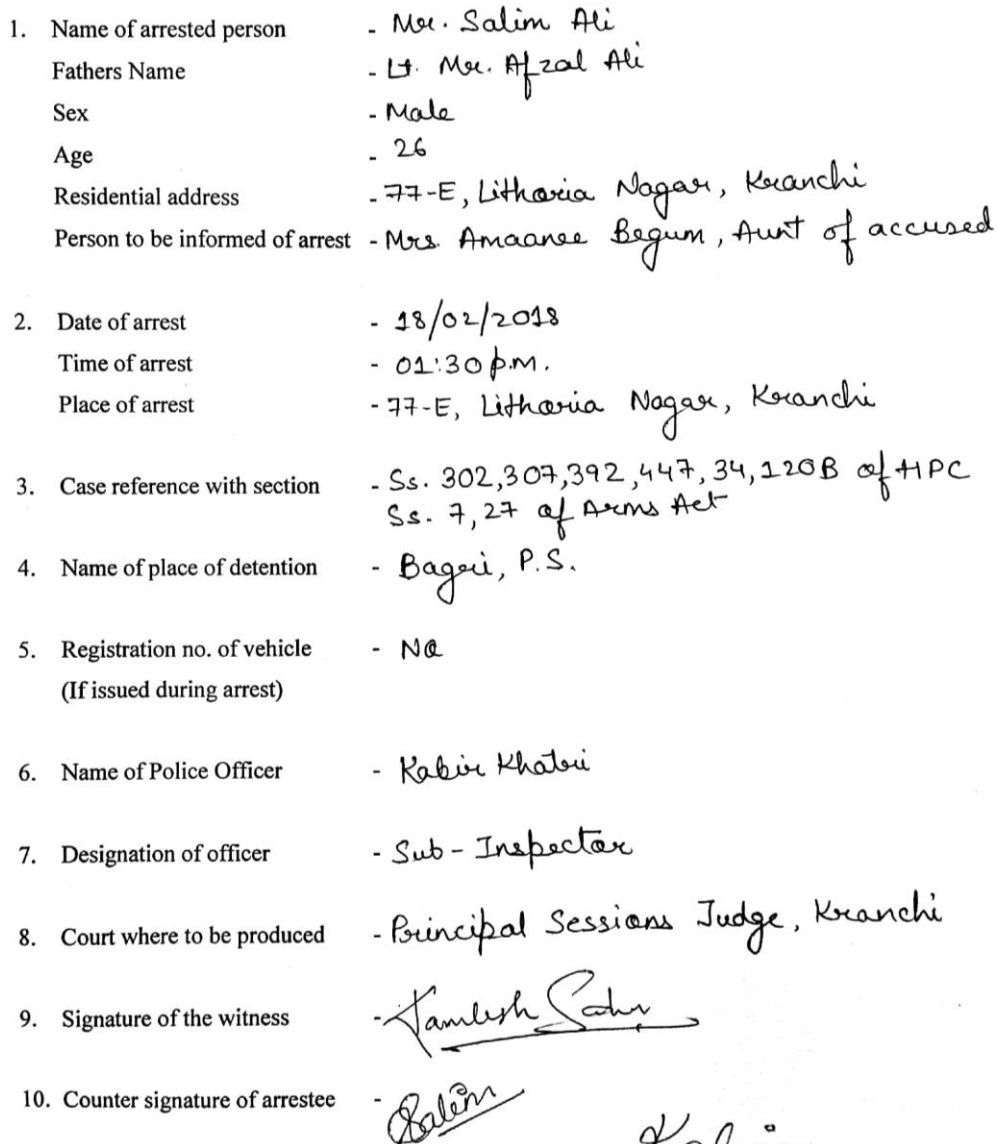 1. Name of arrested person - Mr. Salim Ali
Fathers Name - Lt. Mr. Afzal Ali
Sex - Male
Age - 26
Residential address - 77-E, Litharia Nagar, Kranchi
Person to be informed of arrest - Mrs. Amaanee Begum, Aunt of accused
2. Date of arrest - 18/02/2018
Time of arrest - 01:30 p.m.
Place of arrest - 77-E, Litharia Nagar, Kranchi
3. Case reference with section - Ss. 302,307,392,447,34,120B of HPC
Ss. 7,27 of Arms Act
4. Name of place of detention - Bagri, P.S.
5. Registration no. of vehicle - Na
(If issued during arrest)
6. Name of Police Officer - Kabir Khatri
7. Designation of officer - Sub-Inspector
8. Court where to be produced - Principal Sessions Judge, Kranchi
9. Signature of the witness -
10. Counter signature of arrestee - Salim